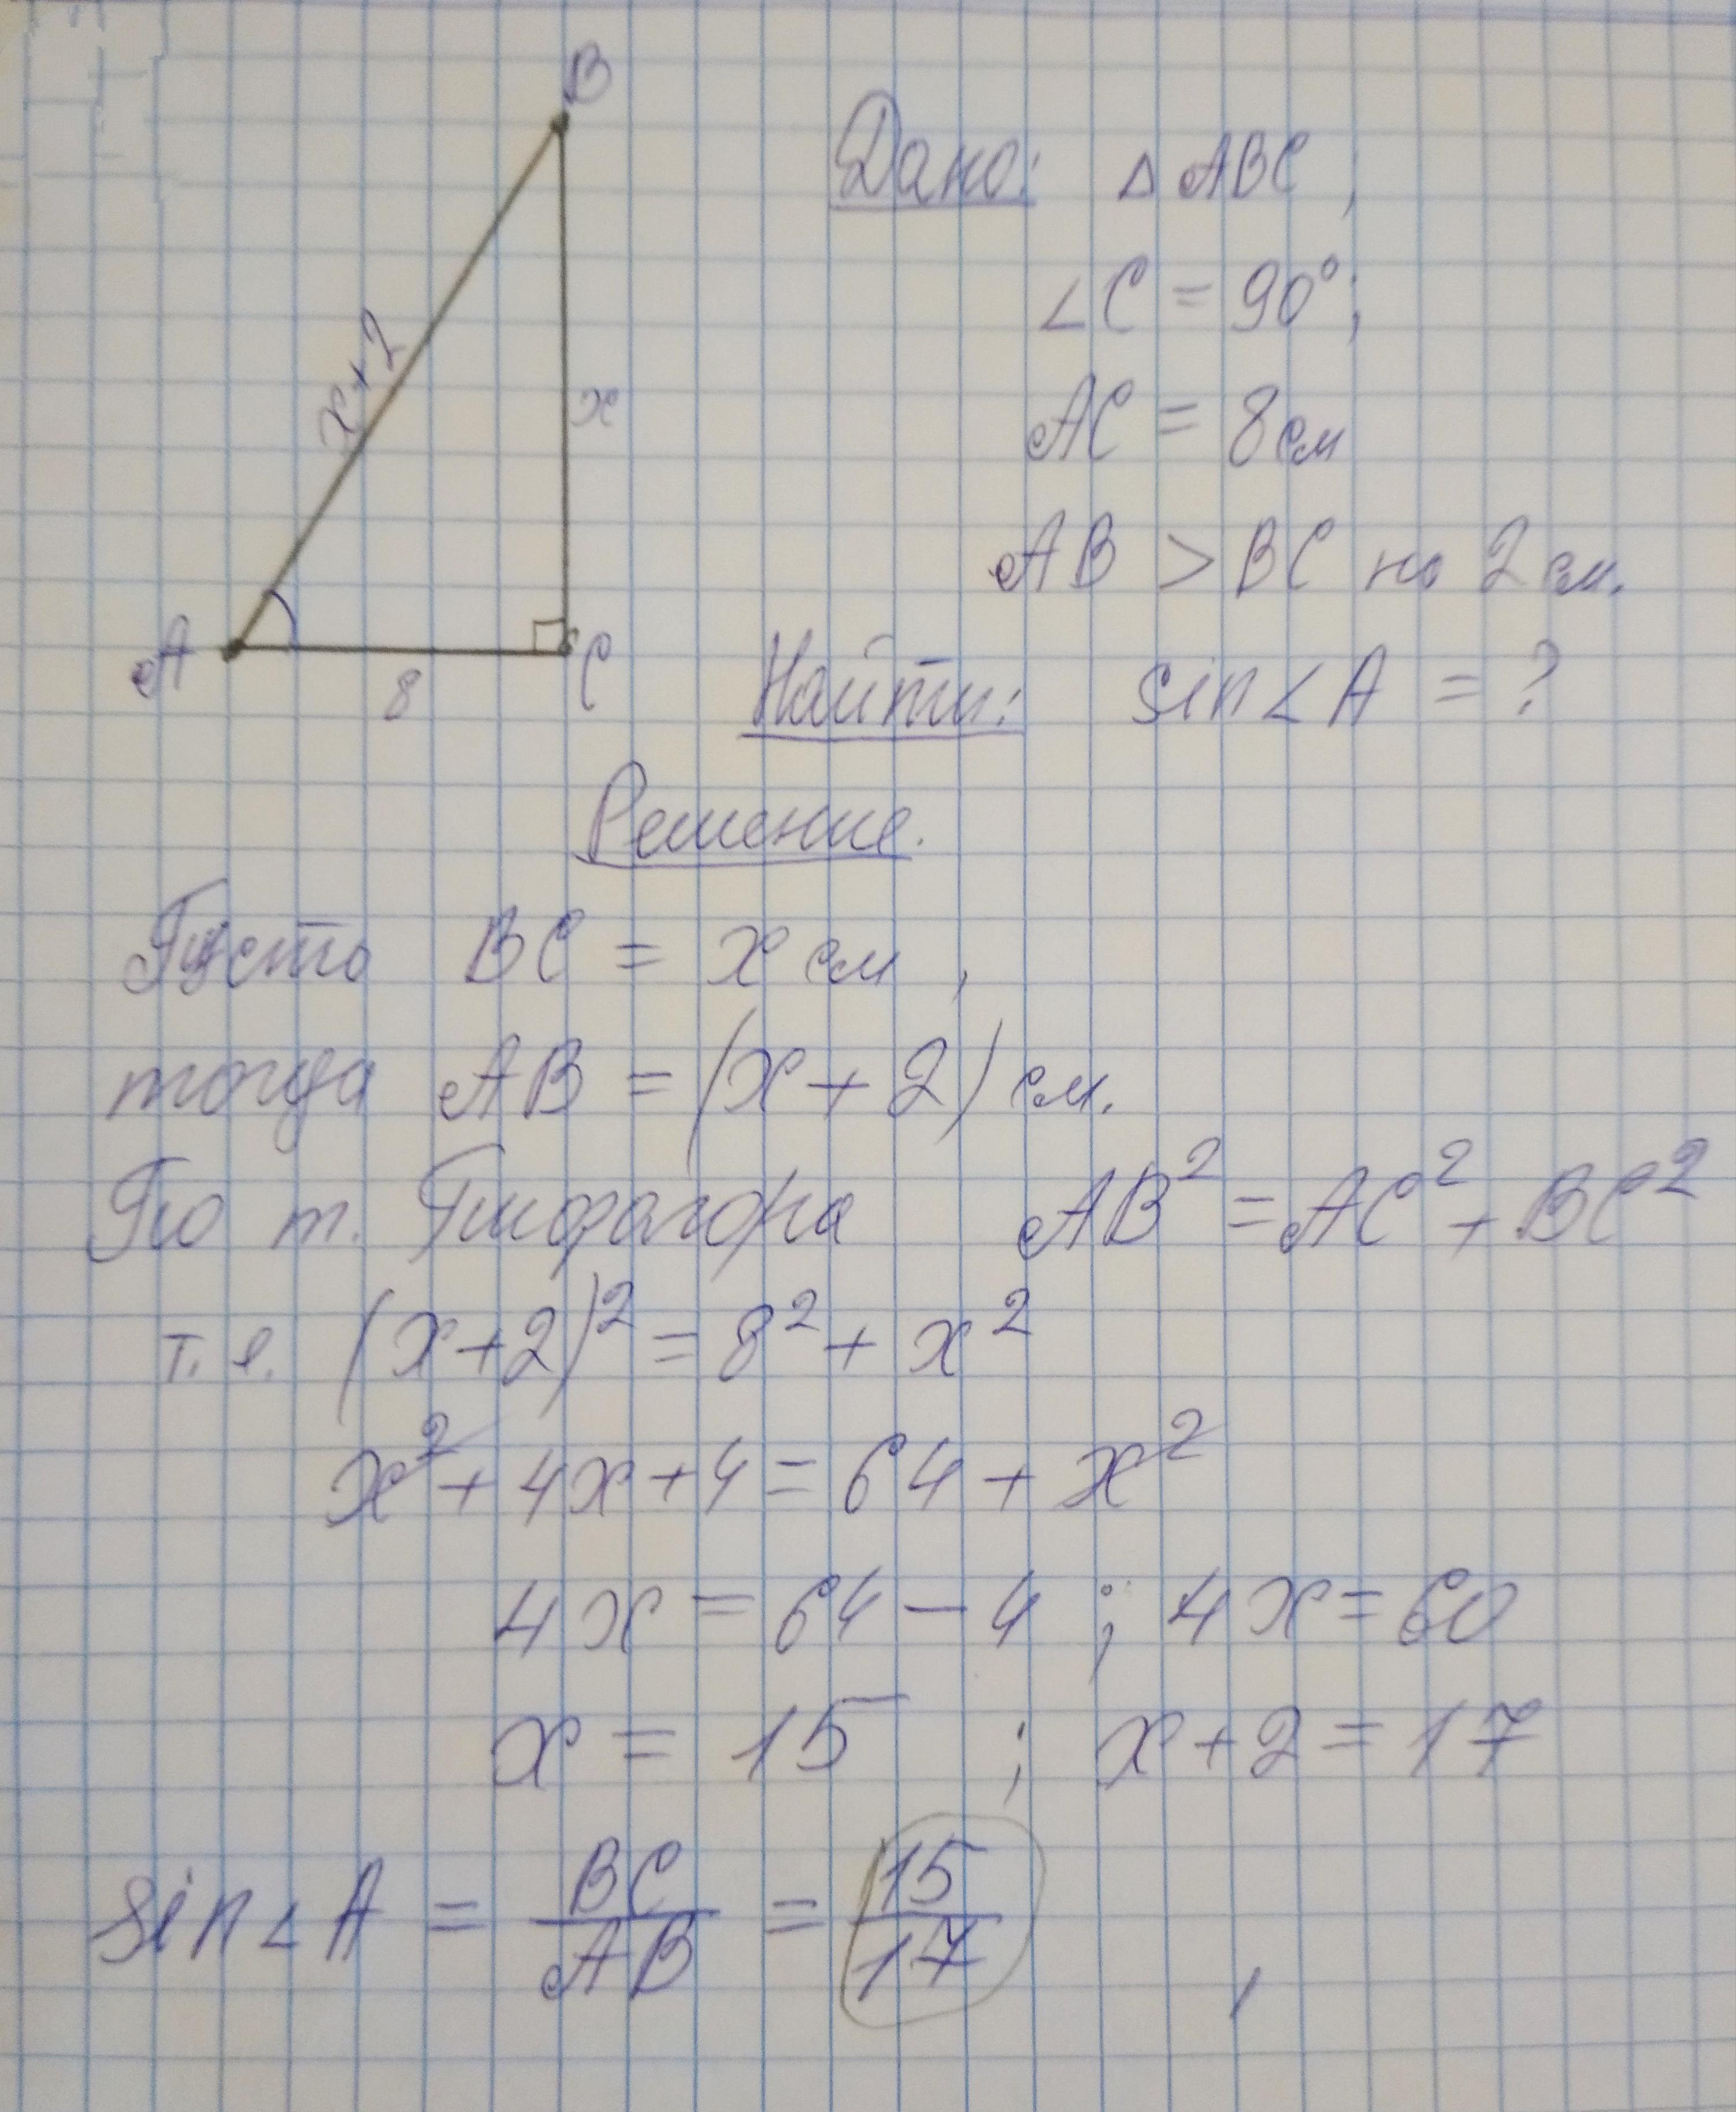 B
Дано: △ABC,
∠C = 90°;
x+2
x
AC = 8см
AB > BC на 2 см.
A
8
C
Найти: sin∠A = ?
Решение.
Пусть BC = x см,
тогда AB = (x + 2) см.
По т. Пифагора AB² = AC² + BC²
т. е. (x+2)² = 8² + x²
x² + 4x + 4 = 64 + x²
4x = 64 – 4 ; 4x = 60
x = 15 ; x + 2 = 17
sin∠A = BC/AB = 15/17